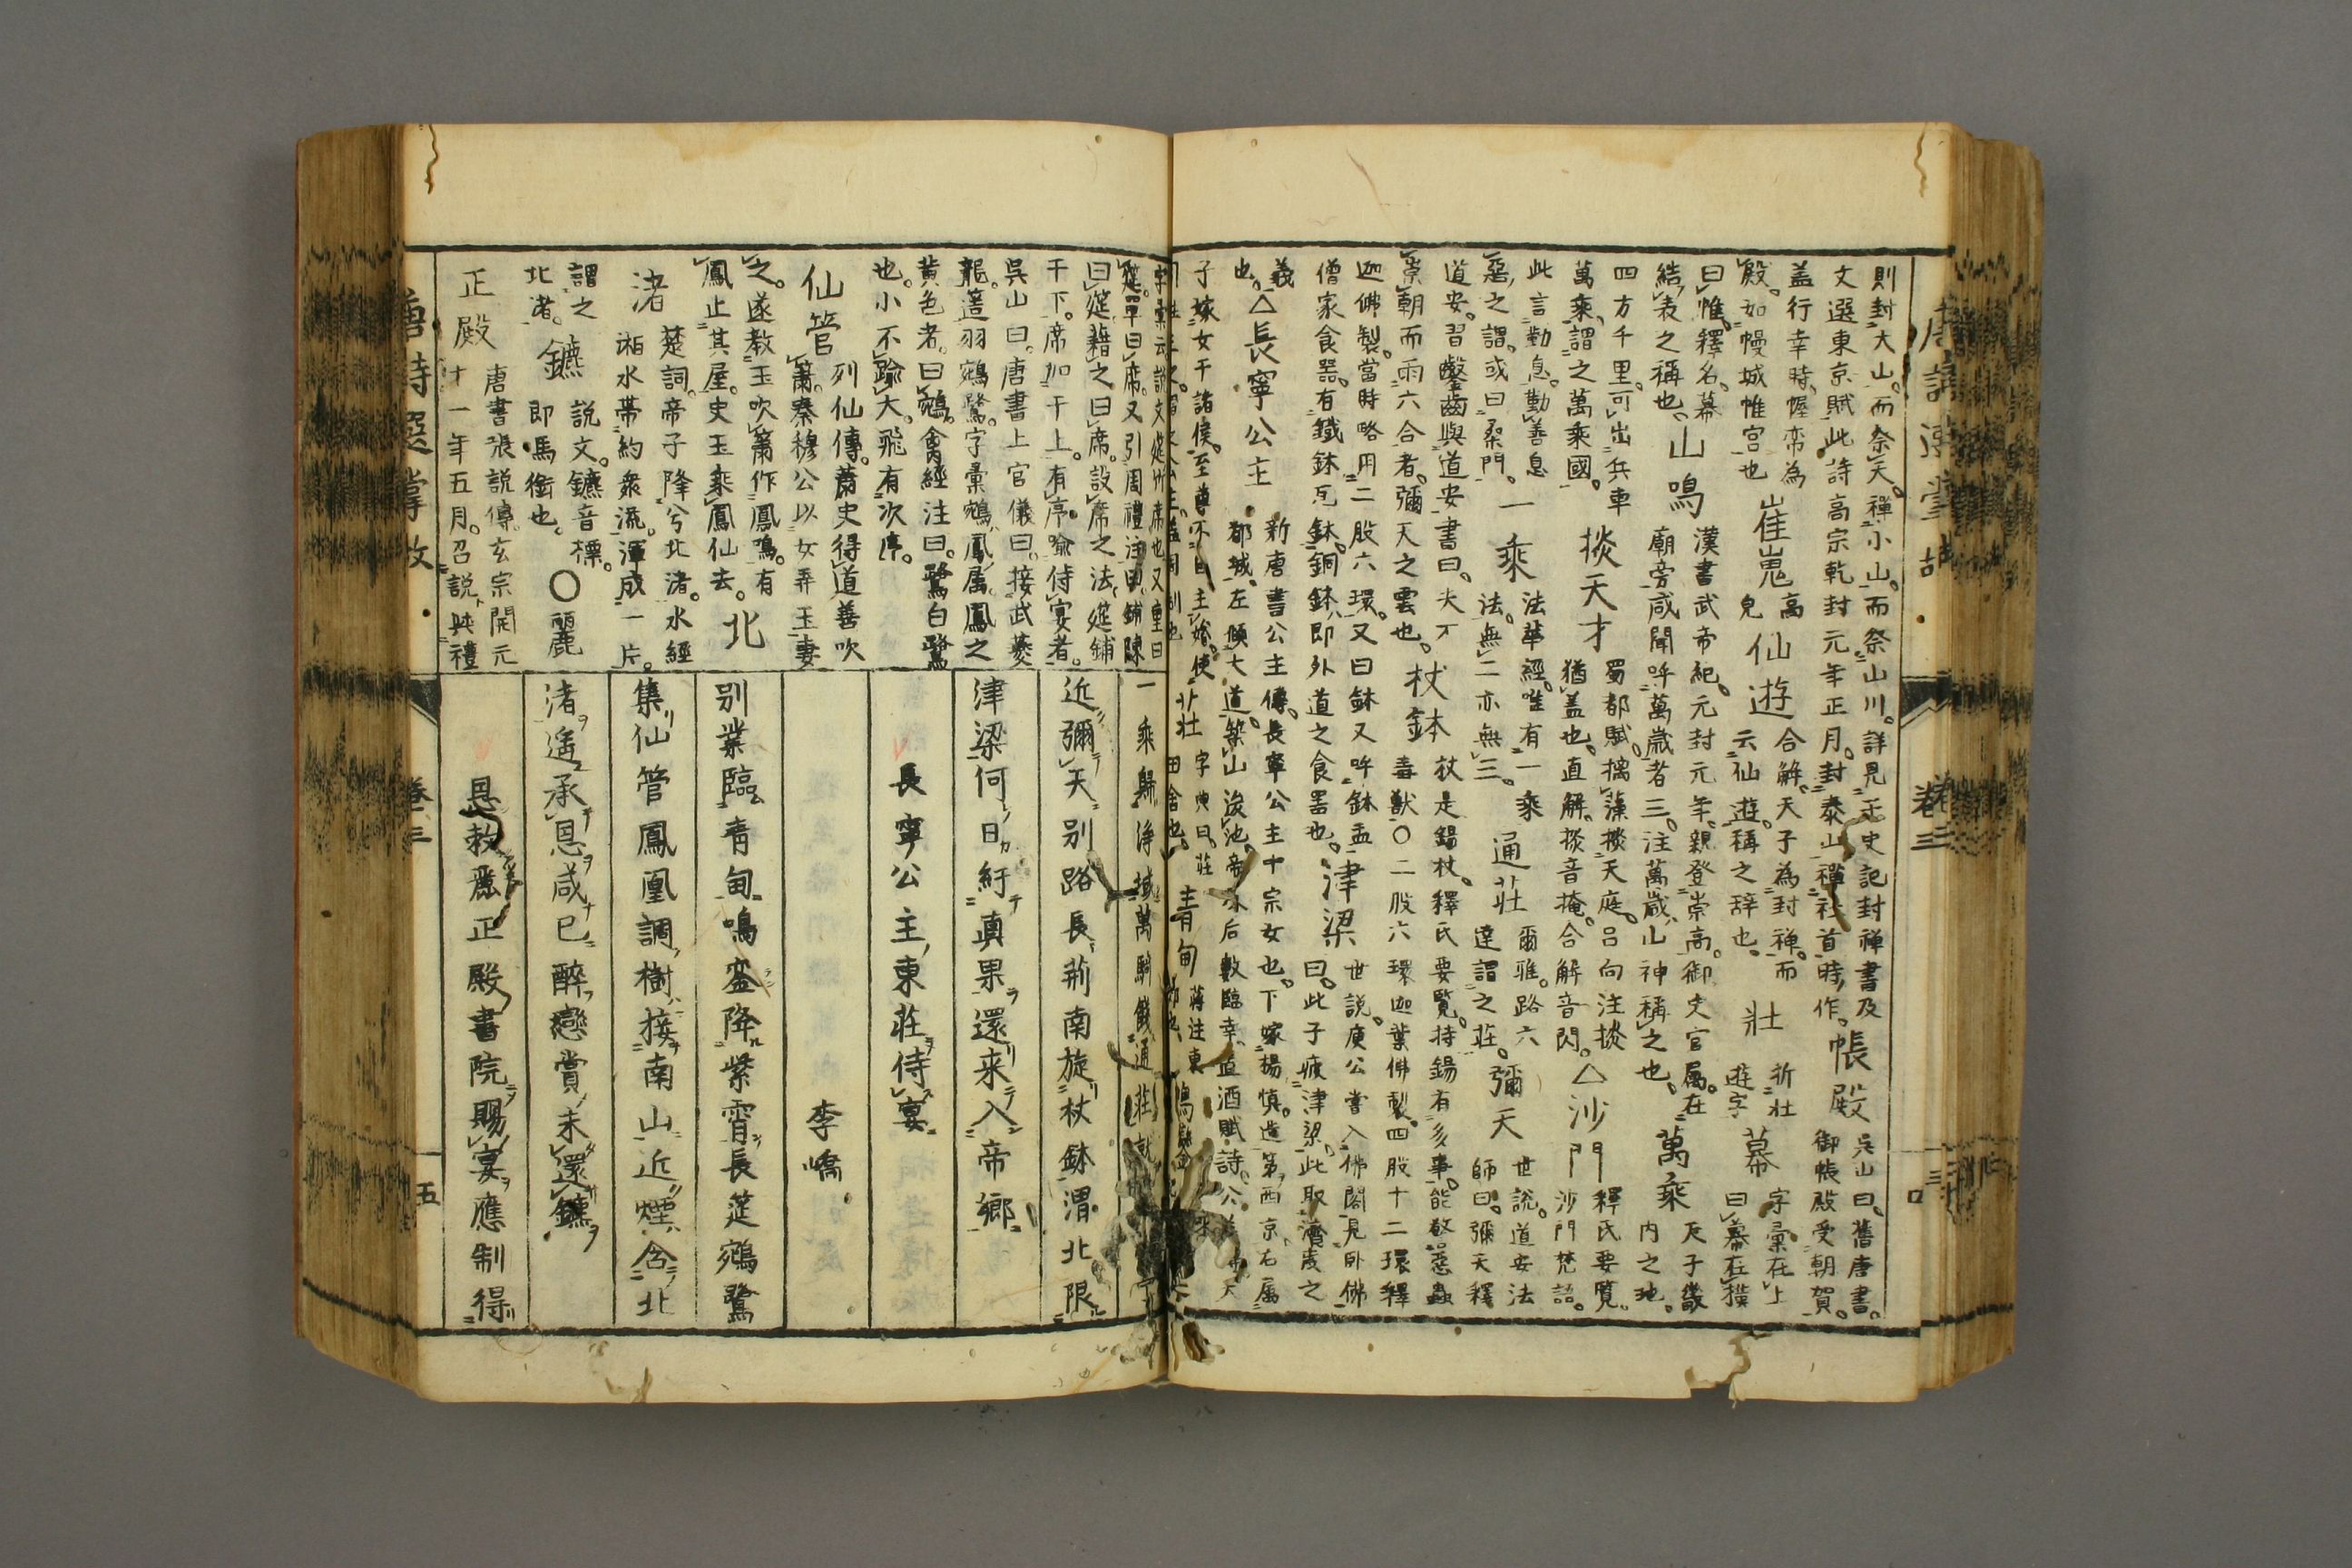 則封大山。而祭天。禪小山。而祭山川。詳見正史記封禅書及
文選東京賦此詩高宗乾封元年正月。封泰山禪社首時作。
帳殿
呉山曰。舊唐書。
御帳殿受朝賀。
盖行幸時。幄帟為
殿。如幔城惟宮也
崔嵬
高
皃
仙遊
合解。天子為封禅。而
云仙遊。稱之辞也。
壮
游字
幕
字彙在上
曰幕在
曰帷。釋名。幕
結。表之稱也。
山鳴
漢書武帝紀。元封元年。親登崇高。御史官属。在
廟旁咸聞呼萬歳者三。注萬歳。山神稱之也。
萬乘
天子畿
内之地。
四方千里。可出兵車
萬乘。謂之萬乘國。
掞天才
蜀都賦。摛藻掞天庭。呂向注掞
猶盖也。直解。掞音掩。合解音閃。
△沙門
釋氏要覧。
沙門梵語。
此言勤息。勤善息
惡之謂。或曰桑門。
一乘
法華經。唯有一乘
法。無二亦無三。
通莊
爾雅。路六
達謂之莊。
彌天
世說。道安法
師曰。彌天釋
道安。習鑿齒與道安書曰。夫不
崇朝而雨六合者。彌天之雲也。
杖鉢
杖是錫杖。釋氏要覧。持錫有多事。能敬惡蟲
毒獣〇二股六環迦葉佛製。四股十二環釋
迦佛製。當時略用二股六環。又曰鉢又呼鉢盂
僧家食器。有鐵鉢瓦鉢。銅鉢。即外道之食器也。
津梁
世説。庾公嘗入佛閣見臥佛
曰。此子疲津梁。此取濟度之
義
也。
△長寧公主
新唐書公主傳。長寧公主中宗女也。下嫁揚慎。造第西京。右属
都城。左傾大道。築山浚池。帝及后數臨幸。置酒賦詩。
子嫁女于諸侯。至尊不自主婚。使
莊
字彙曰。莊
田舎也。
青甸
蒋注東
筵單曰席。又引周禮注曰。鋪陳
曰筵。藉之曰席。設席之法。筵鋪
于下。席加于上。有序。喩侍宴者。
呉山曰。唐書上官儀曰。接武夔
龍。簉羽鵷鷺。字彙鵷。鳳属。鳳之
黄色者。曰鵷。禽經注曰。鷺白鷺
也。小不踰大。飛有次序。
仙管
列仙傳。蕭史得道善吹
簫。秦穆公以女弄玉妻
之。遂教玉吹簫作鳳鳴。有
鳳止其屋。史玉乘鳳仙去。
北
渚
楚詞。帝子降兮北渚。水經
湘水帯約衆流。渾成一片。
謂之
北渚。
鑣
説文。鑣音標。
即馬銜也。
〇麗
正殿
唐書張説傳。玄宗開元
十一年五月。召説與禮
一乘歸浄域萬騎餞通莊就
近彌天別路長荊南旋杖鉢渭北限
津梁何日紆真果還来入帝郷
長寧公主東莊侍宴
李嶠
別業臨青甸鳴鑾降紫霄長筵鵷鷺
集仙管鳳凰調樹接南山近煙含北
渚遙承恩咸已醉戀賞未還鑣
恩敕麗正殿書院賜宴應制得
唐詩選掌故
卷三
五